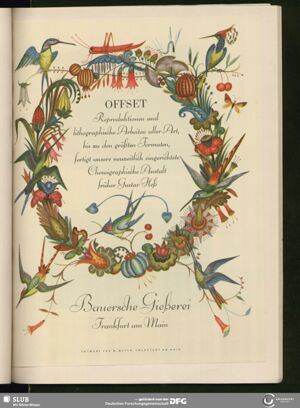 OFFSET
Reproduktionen und
lithographische Arbeiten aller Art,
bis zu den größten Formaten,
fertigt unsere neuzeitlich eingerichtete
Chemigraphische Anstalt
früher Gustav Heß
Bauersche Gießerei
Frankfurt am Main
ENTWURF VON M. MEYER, FRANKFURT AM MAIN
SLUB
Wir führen Wissen.
gefördert von der
Deutschen Forschungsgemeinschaft DFG